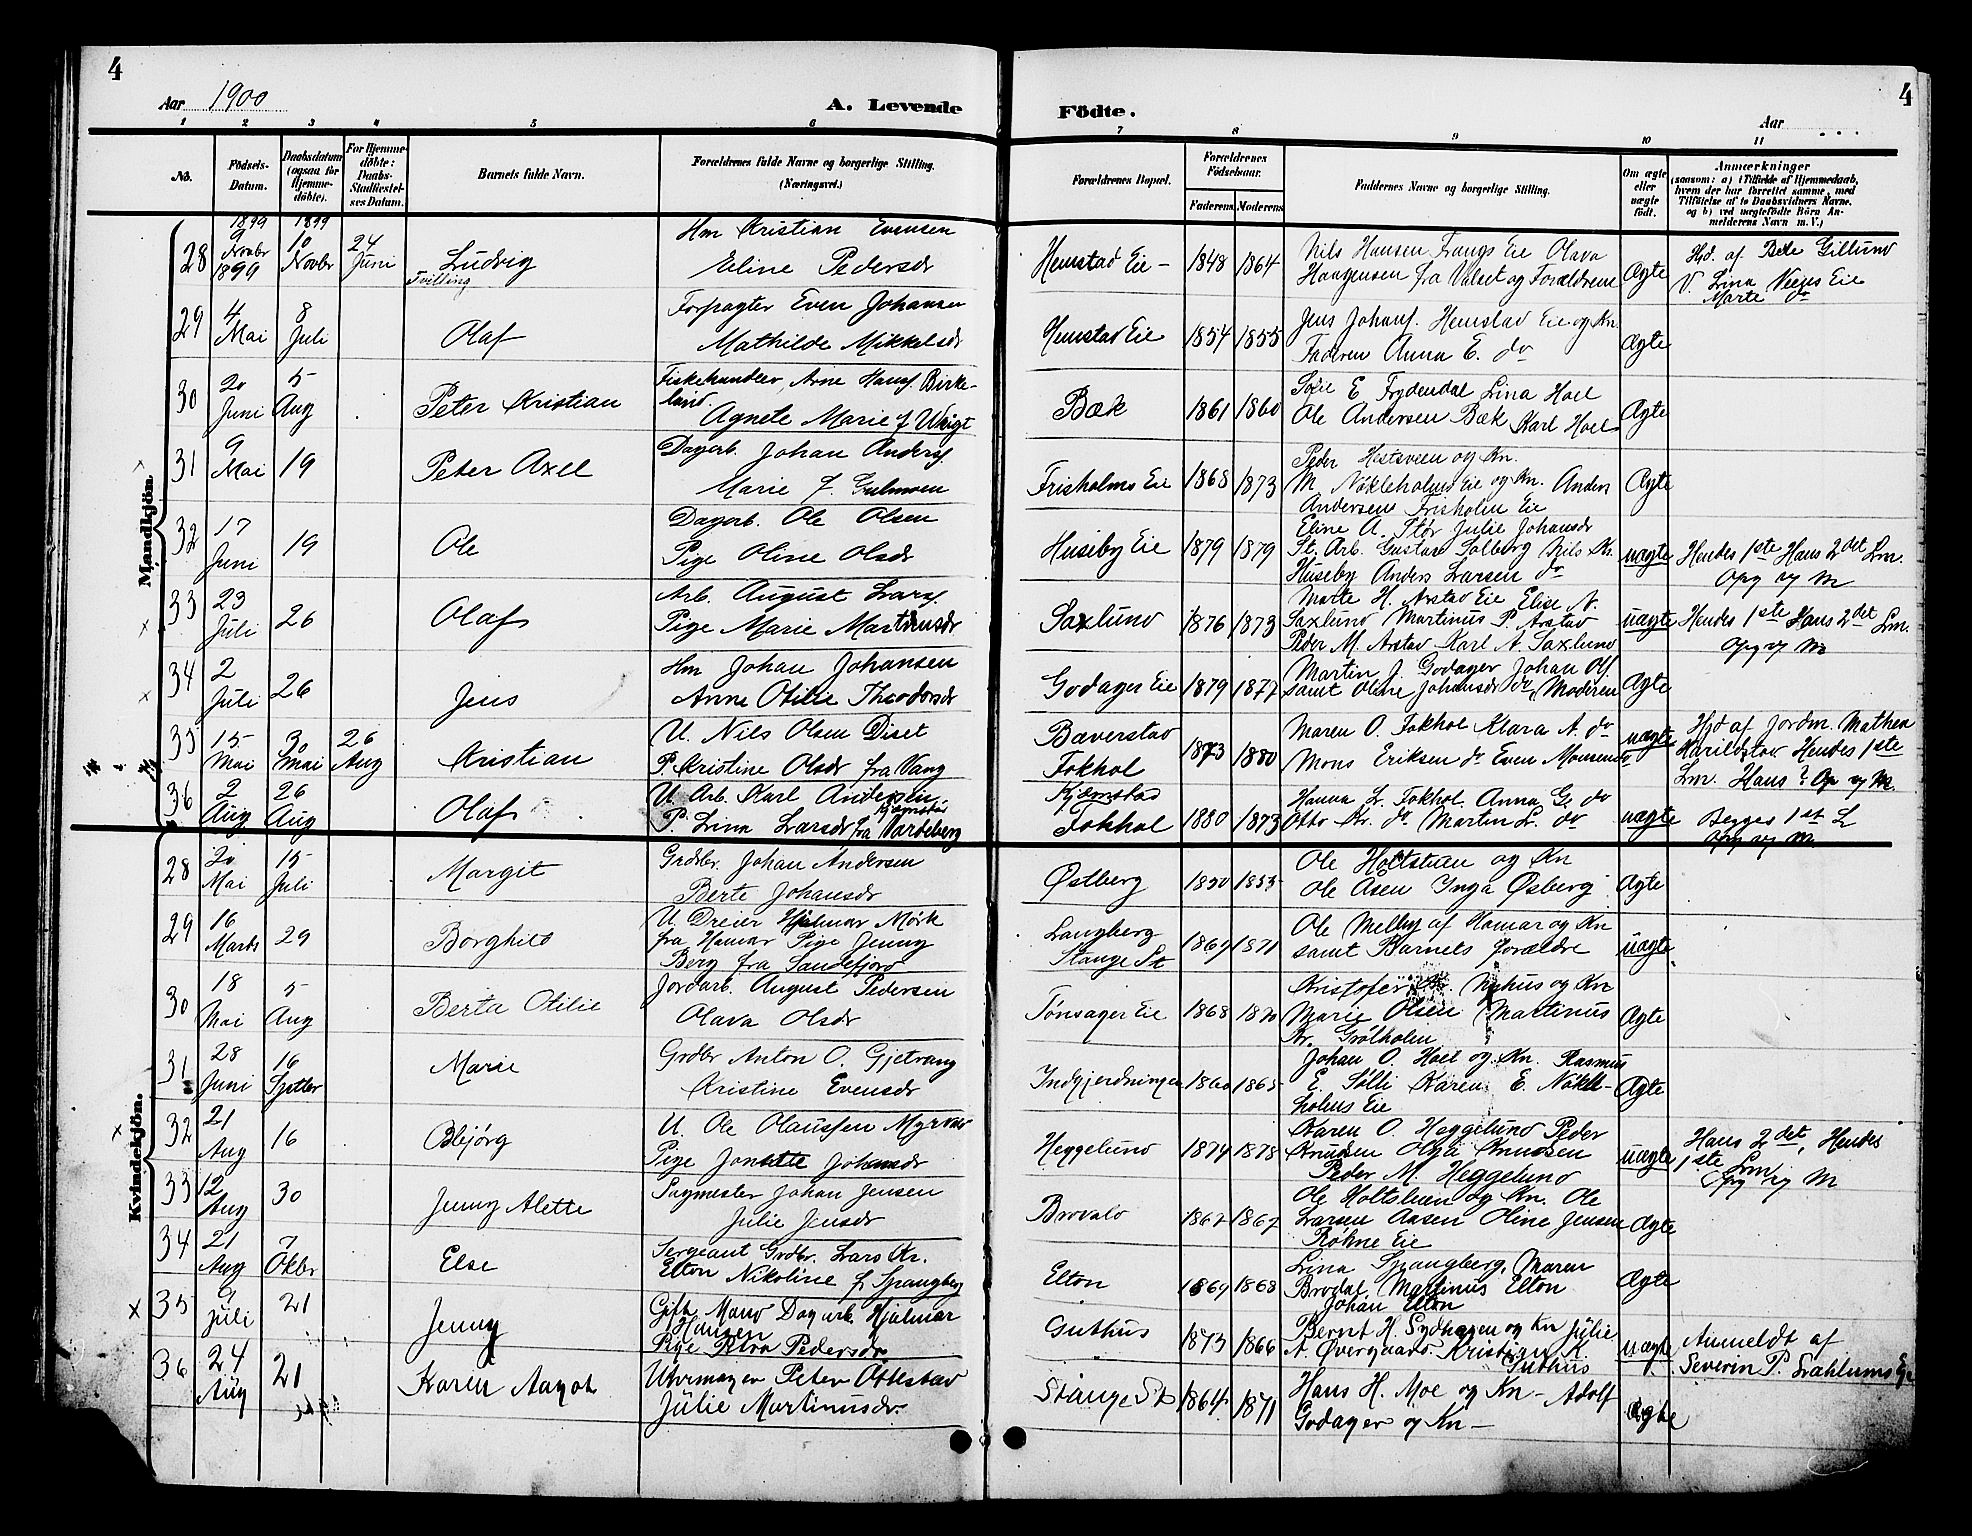 4
Aar 1900
A. Levende
Födte.
Aar
4
1 2 3 4 5 6 7 8 9 10 11
No.
Födsels-Datum.
Daabsdatum (ogsaa for Hjemme-döbte).
For Hjemme-döbte: Daabs-Stadfæstel-ses Datum.
Barnets fulde Navn.
Forældrenes fulde Navne og borgerlige Stilling. (Næringsvei.)
Forældrenes Bopæl.
Forældrenes Födselsaar.
Faderens. Moderens.
Faddernes Navne og borgerlige Stilling.
Om ægte eller uægte födt.
Anmærkninger
(saasom: a) i Tilfælde af Hjemmedaab, hvem der har forrettet samme, med Tilföielse af to Daabsvidners Navne, og b) ved uægtefödte Börn An-melderens Navn m. V.)
Mandkjön.
1899 1899
28 9 Novbr 1899 10 Novbr 24 Juni Ludvig Tvilling
Hm Kristian Evensen
Eline Pedersdr
Hemstad Eie 1848 1864
Nils Hansen Frangs Eie Olava
Haagensen fra Valset og Forældrene
Ægte
Hjd. af Bele Gillund
V. Lina Veens Eie
Marte do
29 4 Mai 8 Juli Olaf
Forpagter Even Johansen
Mathilde Mikkelsdr
Hemstad Eie 1854 1855
Jens Johans. Hemstad Eie og Kn.
Faderen Anna E. do
Ægte
30 20 Juni 5 Aug Peter Kristian
Fiskehandler, Arne Hans. Birke-
land.
Agnete Marie f Wiigt
Bæk 1861 1860
Sofie E Frydendal Lina Hoel
Ole Andersen Bæk Karl Hoel
Ægte
31 9 Mai 19 Peter Axel
Dagarb. Johan Anders.
Marie f. Gulmoen
Frisholms Eie 1868 1873
Peder Hestsveen og Kn.
M. Nökleholms Eie og Kn. Anders
Andersens Frisholm Eie
Ægte
32 17 Juni 19 Ole
Dagarb. Ole Olsen
Pige Oline Olsdr
Huseby Eie 1879 1879
Eline A. Stör Julie Johansdr
St. Arb. Gustav Solberg Nils Kr.
Huseby Anders Larsen do
uægte
Hendes 1ste Hans 2det Lm.
Opg og M
33 23 Juli 26 Olaf
Arb. August Lars.
Pige Marie Martinusdr
Saxlund 1876 1873
Marte H. Arstad Eie Elise N.
Saxlund Martinus P. Arstad
Peder M. Arstad Karl A. Saxlund
uægte
Hendes 1ste Hans 2det Lm.
Opg og M
34 2 Juli 26 Jens
Hm Johan Johansen
Anne Otilie Theodorsdr
Godager Eie 1879 1877
Martin J. Godager Johan Ols.
samt Oline Johansdr do, Moderen
Ægte
35 15 Mai 30 Mai 26 Aug Kristian
U. Nils Olsen Diset
P. Kristine Olsdr fra Vang
Bæverstad
Fokhol
1873 1880
Maren O. Fokhol Klara A. do
Mons Eriksen do Even Monsen do
uægte
Hjd af Jordm. Mathea
Harildstad Hendes 1ste
Lm. Hans ? Op og M.
36 2 Aug 26 Aug Olaf
U. Arb. Karl Andersen Kjemstad
P. Lina Larsdr fra Vardeberg
Kjemstad
Fokhol
1880 1873
Hanna L. Fokhol. Anna G. do
Otto Kr. do Martin L. do
uægte
Begges 1st L
Opg og M
Kvindekjön.
28 20 Mai 15 Juli Margit
Grdbr. Johan Andersen
Berte Johansdr
Östberg 1850 1855
Ole Holtsteen og Kn
Ole Åsen Inga Øsberg
Ægte
29 16 Marts 29 Borghild
U. Dreier Hjalmar Mörk
fra Hamar Pige Jenny
Berg fra Sandefjord
Langberg
Stange St
1869 1871
Ole Melby af Hamar og Kn
samt Barnets forældre
uægte
30 18 Mai 5 Aug Berta Otilie
Jordarb. August Pedersen
Olava Olsdr
Tönsager Eie 1868 1870
Kristofer Nyhus og Kn
Marie Olsen Martinus
Kr. Grölholm
Ægte
31 28 Juni 16 Septbr Marie
Grdbr Anton O. Gjetvang
Kristine Evensdr
Indgjerdningen 1860 1865
Johan O. Hoel og Kn. Rasmus
E. Sölli Karen E. Nökle-
holms Eie
Ægte
32 21 Aug 16 Obbjørg
U. Ole Olaussen Myrvad
Pige Jonette Johansdr
Heggelund 1874 1878
Karen O. Heggelund Peder
Knudsen Olga Knudsen
Peder M. Heggelund
uægte
Hans 2det, Hendes
1ste Lm
Opg og M
33 12 Aug 30 Jenny Alette
Sagmester Johan Jensen
Julie Jensdr
Brovald 1867 1867
Ole Holtsleen og Kn. Ole
Larsen Aasen Oline Jensen
Röhne Eie
Ægte
34 21 Aug 7 Oktbr Else
Sergeant Grdbr. Lars Kr.
Elton Nikoline f. Spangberg
Elton 1869 1868
Lina Spangberg, Maren
Brodal, Martinus Elton
Johan Elton
Ægte
35 9 Juli 21 Jenny
Gift Mand Dagarb. Hjalmar
Hansen
Pige Petra Pedersdr
Guthus 1873 1866
Bernt H. Sydhagen og Kn Julie
A. Øvergaard. Kristian K.
Guthus
uægte
Anmeldt af
Severin P. Dahlums Eje
36 24 Aug 21 Karen Aagot
Uhrmager Peter Ottestad
Julie Martinusdr.
Stange St 1864 1871
Hans H. Moe og Kn - Adolf
Godager og Kn -
Ægte